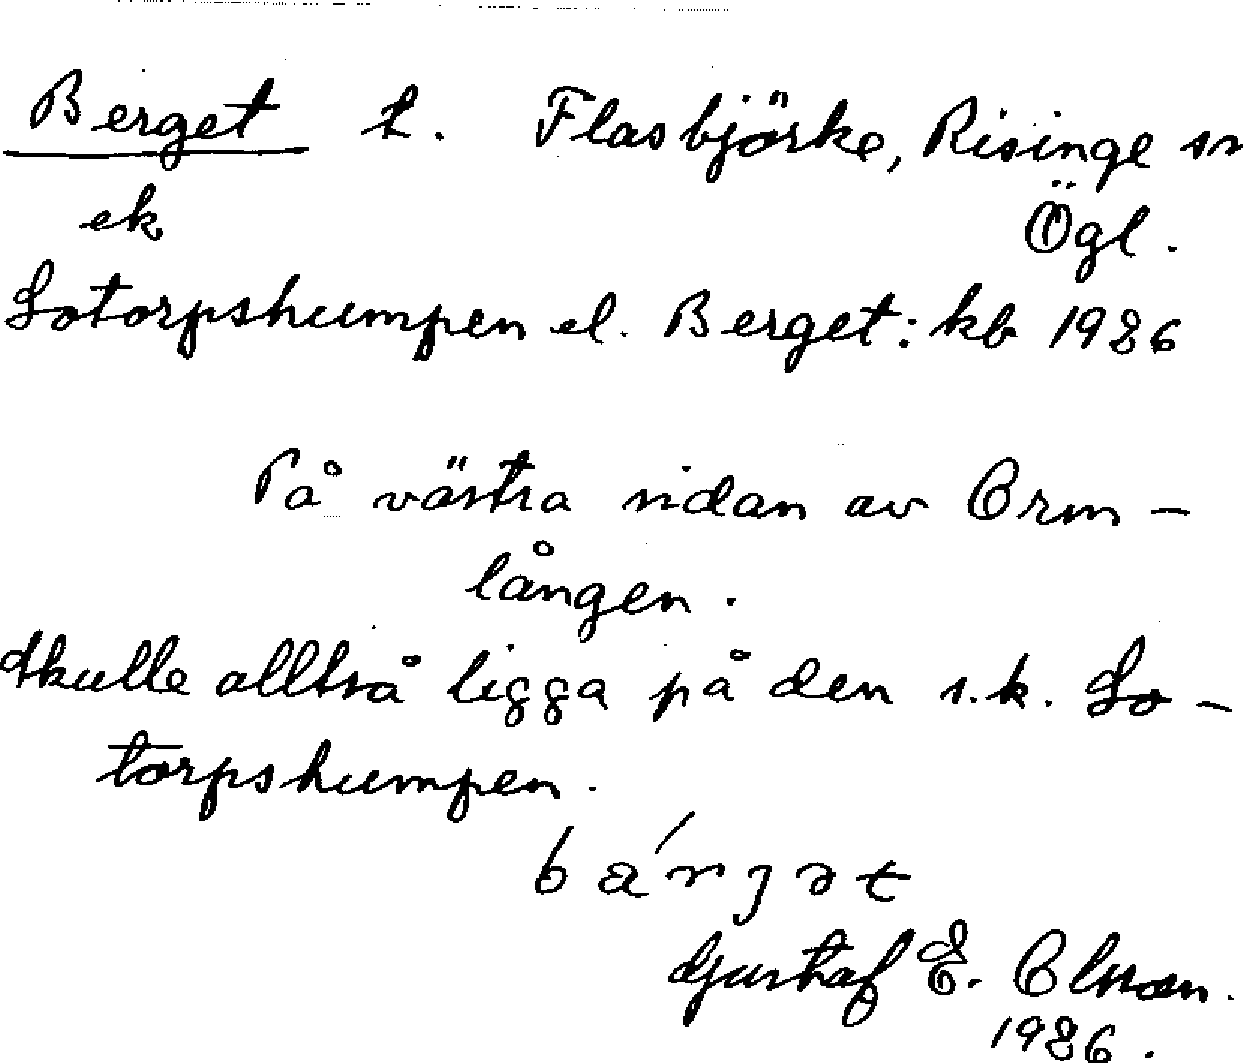 Berget L. Flasbjörke, Risinge sn
ek Ögl.
Sotorpshumpen el. Berget: kb 1986
På västra sidan av Orm-
lången.
Skulle alltså ligga på den s.k. So-
torpshumpen.
bá̀rjət
Gustaf E. Olsson.
1986.